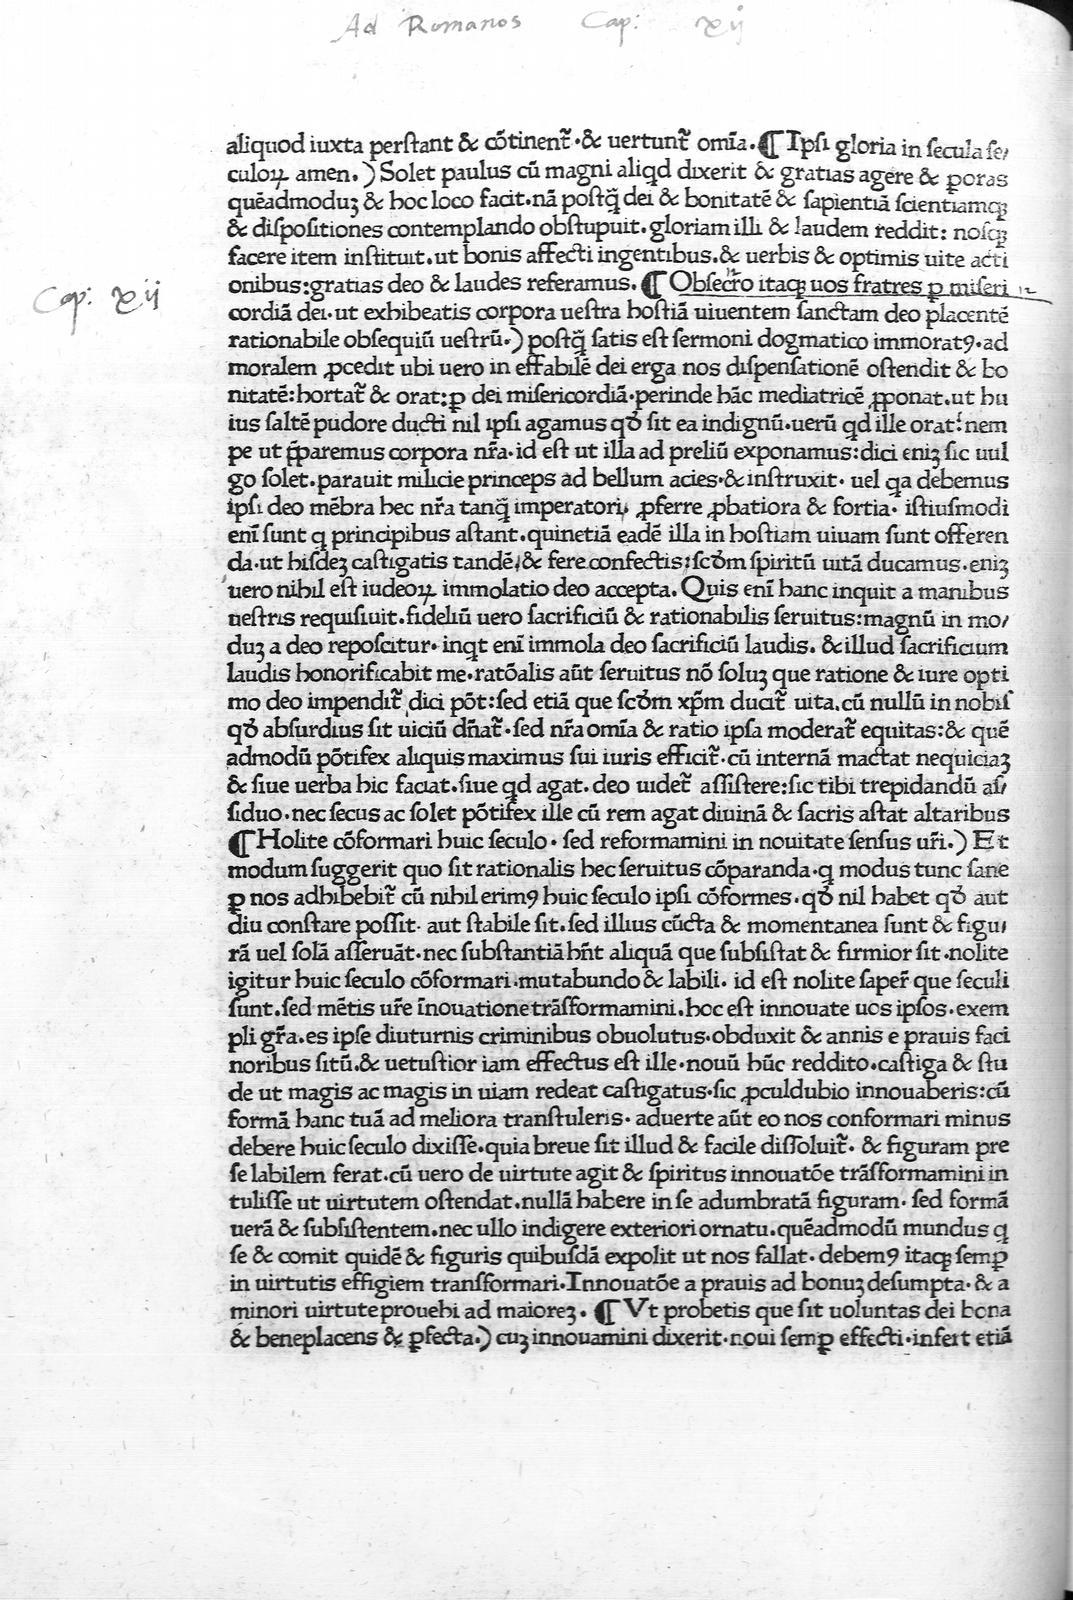 Ad Romanos Cap: xij
aliquod iuxta perſtant & cõtinent᷉·& uertunt᷉ omĩa.¶ Ipſi gloria in ſecula ſe/
culoꝝ amen.) Solet paulus cũ magni aliqd dixerit & gratias agere & ꝑoras
quẽadmoduꝫ & hoc loco facit.nã poſtq̃ dei & bonitatẽ & ſapientiã ſcientiamqꝫ
& diſpoſitiones contemplando obſtupuit.gloriam illi & laudem reddit: noſqꝫ
facere item inſtituit.ut bonis affecti ingentibus.& uerbis & optimis uite acti
onibus:gratias deo & laudes referamus.¶ Obſecro itaqꝫ uos fratres ꝑ miſeri 12
Cap: xij
cordiã dei·ut exhibeatis corpora ueſtra hoſtiã uiuentem ſanctam deo placentẽ
rationabile obſequiũ ueſtrũ.) poſtq̃ ſatis eſt ſermoni dogmatico immoratꝰ·ad
moralem ꝓcedit ubi uero in effabilẽ dei erga nos diſpenſationẽ oſtendit & bo
nitatẽ:hortat᷉ & orat:ꝑ dei miſericordiã·perinde hãc mediatricẽ ꝓponat.ut hu
ius ſaltẽ pudore ducti nil ipſi agamus qđ ſit ea indignũ.uerũ qd ille orat:nem
pe ut p̃paremus corpora nr̃a·id eſt ut illa ad preliũ exponamus:dici eniꝫ ſic uul
go ſolet.parauit milicie princeps ad bellum acies·& inſtruxit· uel qa debemus
ipſi deo mẽbra hec nr̃a tanq̃ imperatori, ꝓferre ꝓbatiora & fortia· iſtiuſmodi
enĩ ſunt q principibus aſtant.quinetiã eadẽ illa in hoſtiam uiuam ſunt offeren
da·ut hiſdeꝫ caſtigatis tandẽ,& fere confectis:ſcđm ſpiritũ uitã ducamus.eniꝫ
uero nihil eſt iudeoꝝ immolatio deo accepta. Quis enĩ hanc inquit a manibus
ueſtris requiſiuit.fideliũ uero ſacrificiũ & rationabilis ſeruitus:magnũ in mo/
duꝫ a deo repoſcitur· inqt enĩ immola deo ſacrificiũ laudis. & illud ſacrificium
laudis honorificabit me·ratõalis aũt ſeruitus nõ ſoluꝫ que ratione & iure opti
mo deo impendit᷉ dici põt:ſed etiã que ſcđm xp̃m ducit᷉ uita.cũ nullũ in nobiſ
qđ abſurdius ſit uiciũ dñat᷉·ſed nr̃a omĩa & ratio ipſa moderat᷉ equitas:& quẽ
admodũ põtifex aliquis maximus ſui iuris efficit᷉·cũ internã mactat nequiciaꝫ
& ſiue uerba hic faciat.ſiue qd agat.deo uidet᷉ aſſiſtere:ſic tibi trepidandũ aſ/
ſiduo·nec ſecus ac ſolet põtifex ille cũ rem agat diuinã & ſacris aſtat altaribus
¶ Holite cõformari huic ſeculo· ſed reformamini in nouitate ſenſus ur̃i.) Et
modum ſuggerit quo ſit rationalis hec ſeruitus cõparanda·q modus tunc ſane
ꝑ nos adhibebit᷉ cũ nihil erimꝰ huic ſeculo ipſi cõformes.qđ nil habet qđ aut
diu conſtare poſſit· aut ſtabile ſit.ſed illius cũcta & momentanea ſunt & figu/
rã uel ſolã aſſeruãt·nec ſubſtantiã hñt aliquã que ſubſiſtat & firmior ſit·nolite
igitur huic ſeculo cõformari·mutabundo & labili. id eſt nolite ſaper̃ que ſeculi
ſunt.ſed mẽtis ur̃e ĩnouatione trãſformamini.hoc eſt innouate uos ipſos·exem
pli gr̃a.es ipſe diuturnis criminibus obuolutus·obduxit & annis e prauis faci
noribus ſitũ.& uetuſtior iam effectus eſt ille·nouũ hũc reddito.caſtiga & ſtu
de ut magis ac magis in uiam redeat caſtigatus·ſic ꝓculdubio innouaberis:cũ
formã hanc tuã ad meliora tranſtuleris· aduerte aũt eo nos conformari minus
debere huic ſeculo dixiſſe.quia breue ſit illud & facile diſſoluit᷉· & figuram pre
ſe labilem ferat.cũ uero de uirtute agit & ſpiritus innouatõe trãſformamini in
tuliſſe ut uirtutem oſtendat.nullã habere in ſe adumbratã figuram· ſed formã
uerã & ſubſiſtentem.nec ullo indigere exteriori ornatu.quẽadmodũ mundus q
ſe & comit quidẽ & figuris quibuſdã expolit ut nos fallat·debemꝰ itaqꝫ ſemꝑ
in uirtutis effigiem tranſformari.Innouatõe a prauis ad bonuꝫ deſumpta· & a
minori uirtute prouehi ad maioreꝫ. ¶ Vt probetis que ſit uoluntas dei bona
& beneplacens & ꝑfecta.) cuꝫ innouamini dixerit·noui ſemꝑ effecti·infert etiã